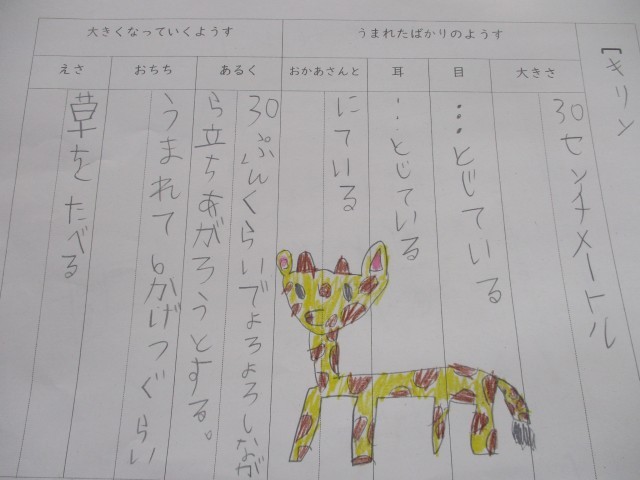 「キリン
うまれたばかりのようす
大きさ
30センチメートル
目
…とじている
耳
…とじている
おかあさんと
にている
大きくなっていくようす
あるく
30ぷんくらいでよろよろしなが
ら立ちあがろうとする。
おちち
うまれて6かげつぐらい
えさ
草をたべる